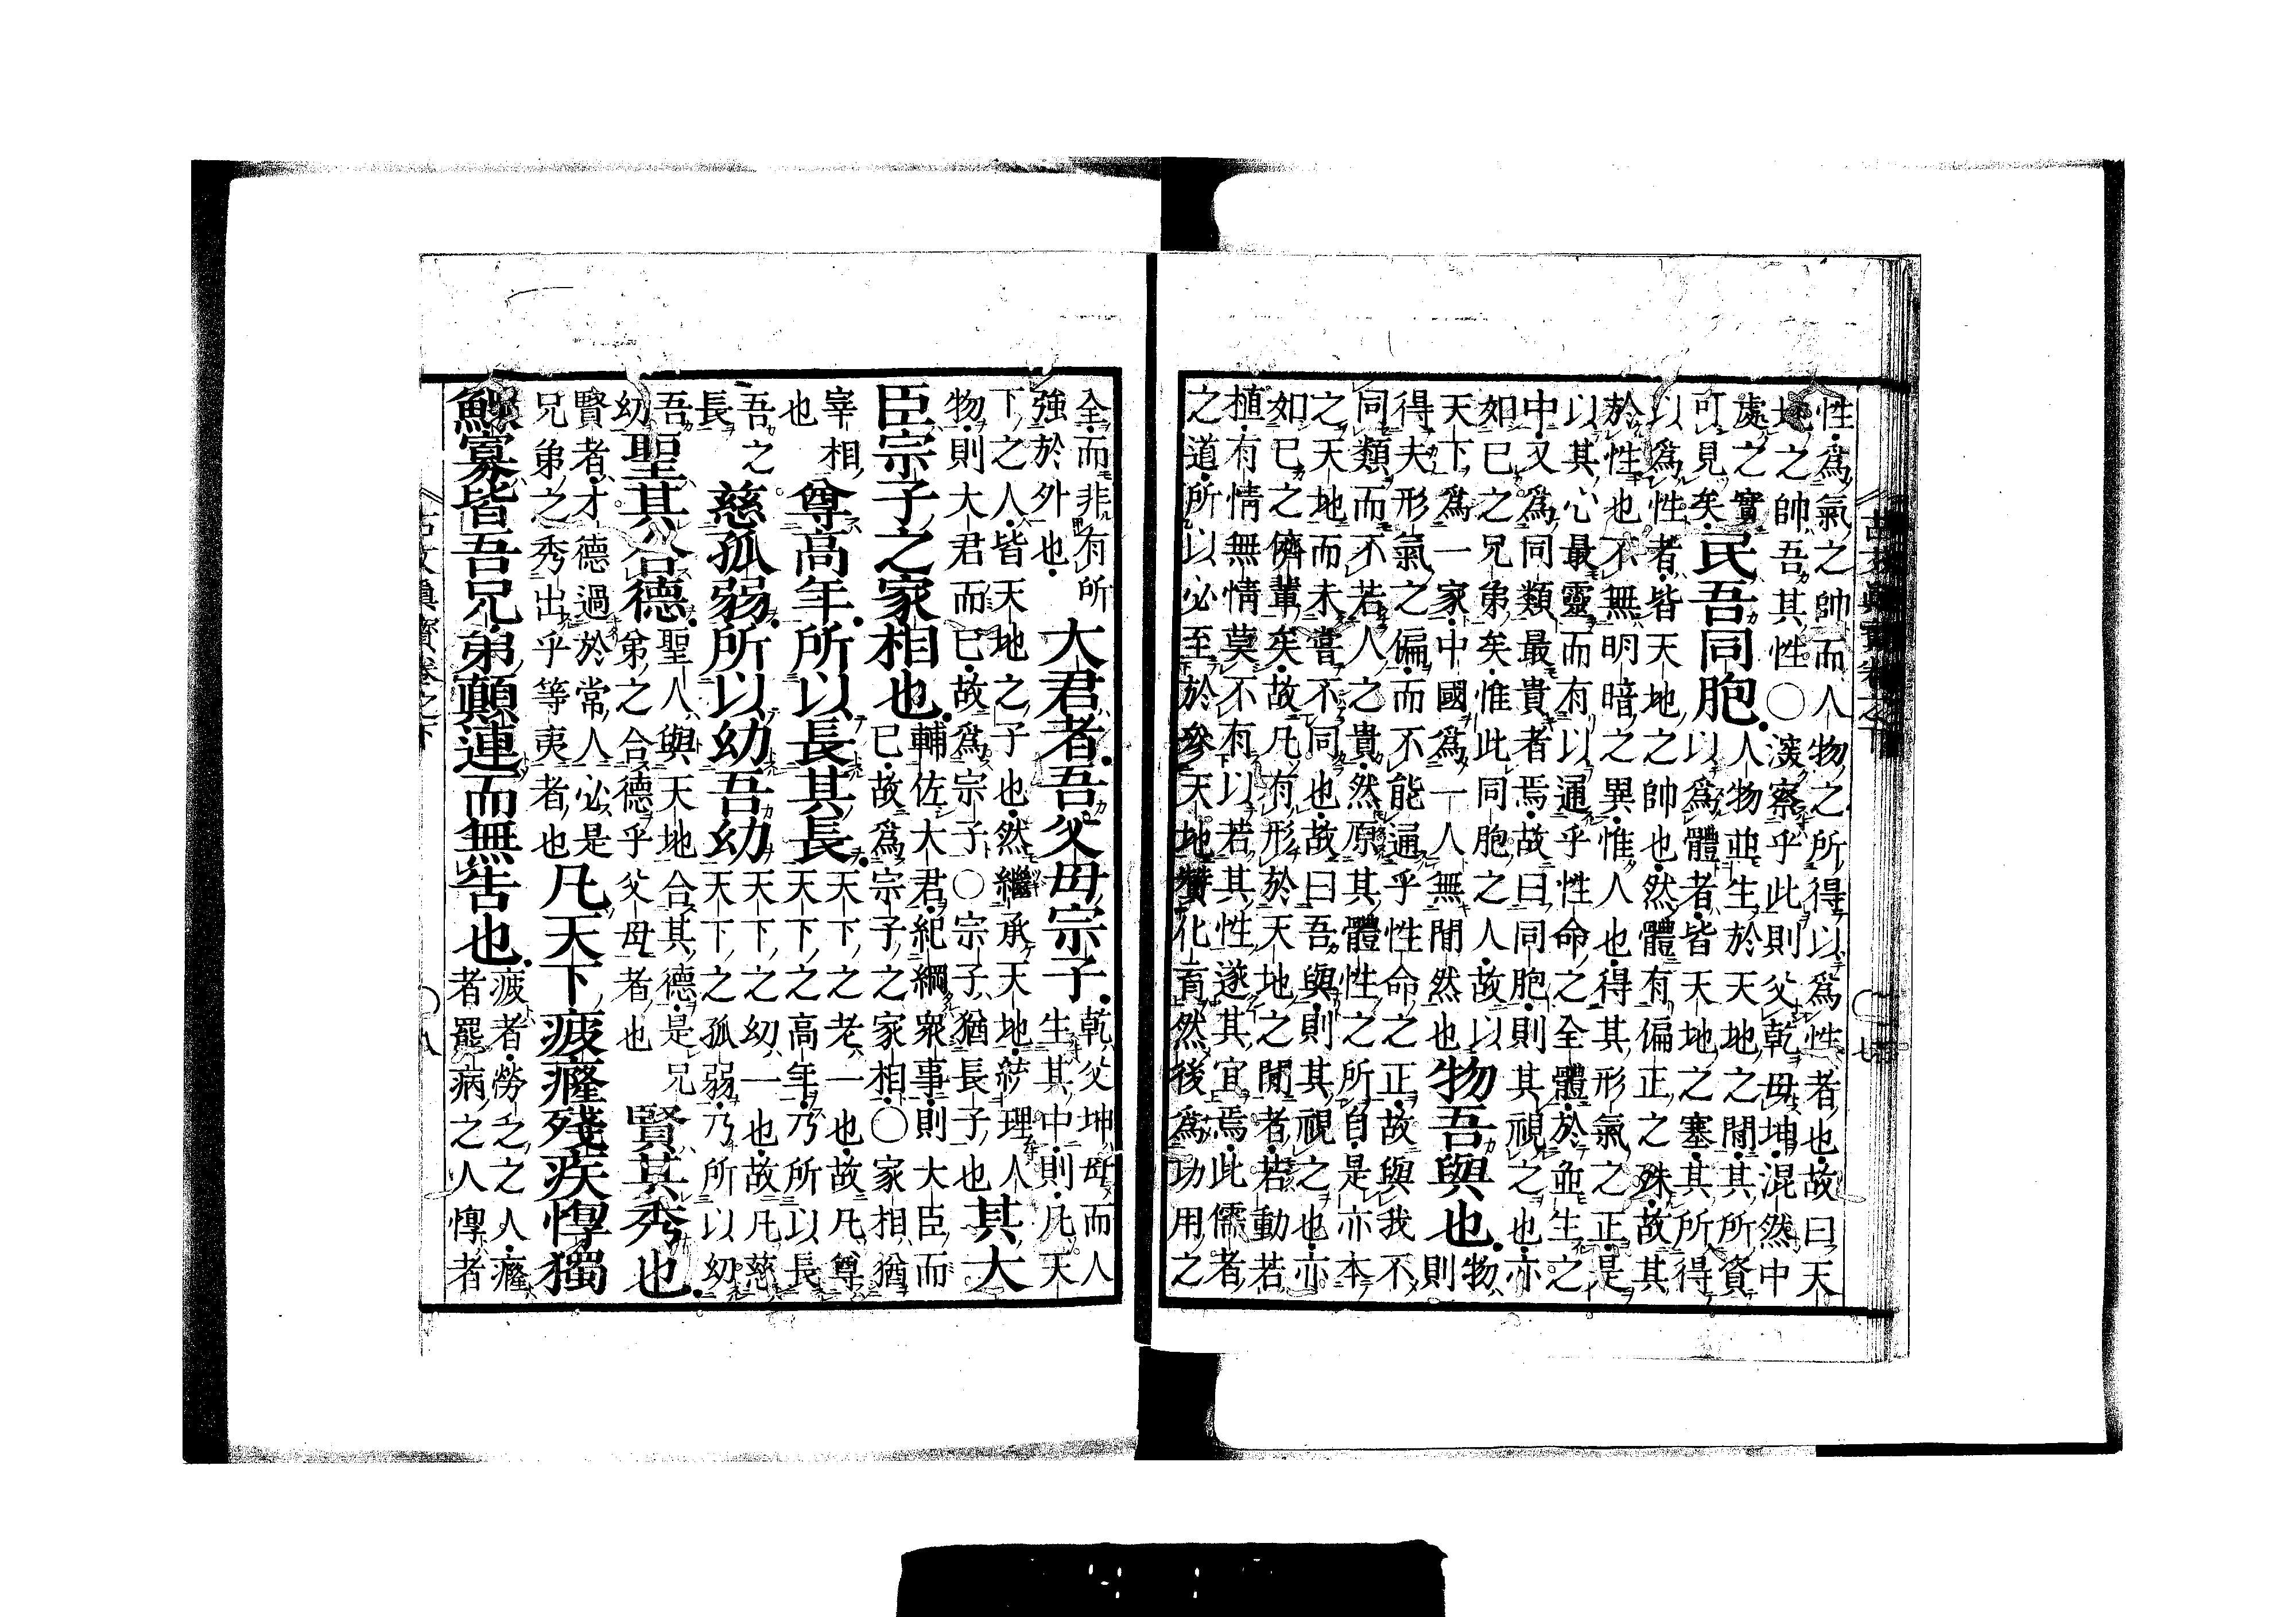 古文眞寶卷之下 七
性爲氣之帥而人物之所得以爲性者也故曰天
地之帥吾其性○深察乎此則父乾母坤混然中
處之實
可見矣
民吾同胞
人物並生於天地之閒其所資
以爲體者皆天地之塞其所得
以爲性者皆天地之帥也然體有偏正之殊故其
於性也不無明暗之異惟人也得其形氣之正是
以其心最靈而有以通乎性命之全體於並生之
中又爲同類最貴者焉故曰同胞則其視之也亦
如已之兄弟矣惟此同胞之人故以
天下爲一家中國爲一人無閒然也
物吾與也
物
則
得夫形氣之偏而不能通乎性命之正故與我不
同類而不若人之貴然原其體性之所自是亦本
之天地而未嘗不同也故曰吾與則其視之也亦
如已之儕輩矣故凡有形於天地之閒者若動若
植有情無情莫不有以若其性遂其宜焉此儒者
之道所以必至於參天地贊化育然後爲功用之
全而非有所
強於外也
大君者吾父母宗子
乾父坤母而人
生其中則凡天
下之人皆天地之子也然繼承天地統理人
物則大君而已故爲宗子○宗子猶長子也
其大
臣宗子之家相也
輔佐大君紀綱衆事則大臣而
已故爲宗子之家相○家相猶
宰相
也
尊高年所以長其長
天下之老一也故凡尊
天下之高年乃所以長
吾之
長
慈孤弱所以幼吾幼
天下之幼一也故凡慈
天下之孤弱乃所以幼
吾
幼
聖其合德
聖人與天地合其德是兄
弟之合德乎父母者也
賢其秀也
賢者才德過於常人必是
兄弟之秀出乎等夷者也
凡天下疲癃殘疾惸獨
鰥寡皆吾兄弟顛連而無告也
疲者勞乏之人癃
者罷病之人惸者
古文眞寶卷之下 八